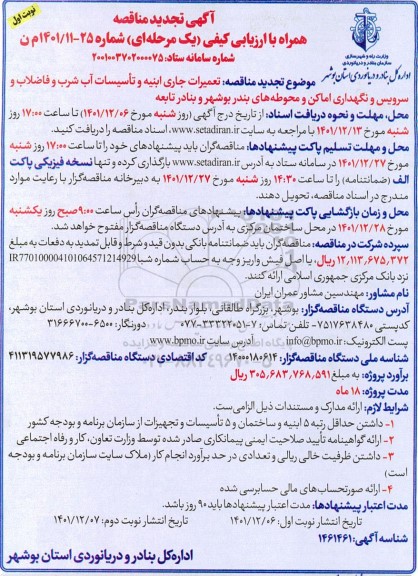 آگهی تجدید مناقصه
نوبت اول
همراه با ارزیابی کیفی (یک مرحله‌ای) شماره ۲۵-۱۴۰۱/۱۱م ن
شماره سامانه ستاد: ۲۰۰۱۰۰۳۷۰۲۰۰۰۰۷۵
وزارت راه و شهرسازی
سازمان بنادر و دریانوردی
اداره کل بنادر و دریانوردی استان بوشهر
موضوع تجدید مناقصه: تعمیرات جاری ابنیه و تأسیسات آب شرب و فاضلاب و
سرویس و نگهداری اماکن و محوطه‌های بندر بوشهر و بنادر تابعه
محل، مهلت و نحوه دریافت اسناد: از تاریخ درج آگهی (روز شنبه مورخ ۱۴۰۱/۱۲/۰۶) تا ساعت ۱۷:۰۰ روز
شنبه مورخ ۱۴۰۱/۱۲/۱۳ با مراجعه به سایت www.setadiran.ir، اسناد مناقصه را دریافت کنید.
محل و مهلت تسلیم پاکت پیشنهادها: مناقصه‌گران باید پیشنهادهای خود را تا ساعت ۱۷:۰۰ روز شنبه
مورخ ۱۴۰۱/۱۲/۲۷ در سامانه ستاد به آدرس www.setadiran.ir بارگذاری کرده و تنها نسخه فیزیکی پاکت
الف (ضمانتنامه) را تا ساعت ۱۴:۳۰ روز شنبه مورخ ۱۴۰۱/۱۲/۲۷ به دبیرخانه مناقصه‌گزار با رعایت موارد
مندرج در اسناد مناقصه، تحویل دهند.
محل و زمان بازگشایی پاکت پیشنهادها: پیشنهادهای مناقصه‌گران رأس ساعت ۹:۰۰ صبح روز یکشنبه
مورخ ۱۴۰۱/۱۲/۲۸ در محل ساختمان مرکزی به آدرس دستگاه مناقصه‌گزار مفتوح خواهد شد.
سپرده شرکت در مناقصه: مناقصه‌گران باید ضمانتنامه بانکی بدون قید و شرط و قابل تمدید به دفعات به مبلغ
۱۲,۱۱۳,۶۷۵,۳۷۲ ریال، یا اصل فیش واریز وجه به حساب شماره شبا IR770100004101064571214929
نزد بانک مرکزی جمهوری اسلامی ارائه کنند.
نام مشاور: مهندسین مشاور عمران ایران
آدرس دستگاه مناقصه‌گزار: بوشهر، بزرگراه طالقانی، بلوار بندر، اداره کل بنادر و دریانوردی استان بوشهر،
کدپستی ۷۵۱۷۶۳۸۴۸۰ - تلفن تماس: ۷-۳۳۳۲۲۰۵۱-۰۷۷ دورنگار: ۶۵۰۰-۳۱۶۶۶۷۰۰
پست الکترونیک: info@bpmo.ir آدرس سایت www.bpmo.ir
شناسه ملی دستگاه مناقصه‌گزار: ۱۴۰۰۰۱۸۰۶۱۴ کد اقتصادی دستگاه مناقصه‌گزار: ۴۱۱۳۱۹۵۷۷۹۸۶
برآورد پروژه: به مبلغ ۳۰۵,۶۸۳,۷۶۸,۵۹۱ ریال
مدت پروژه: ۱۸ ماه
شرایط لازم: ارائه مدارک و مستندات ذیل الزامی‌ست.
۱- داشتن حداقل رتبه ۵ ابنیه و ساختمان و ۵ تأسیسات و تجهیزات از سازمان برنامه و بودجه کشور
۲- ارائه گواهینامه تأیید صلاحیت ایمنی پیمانکاری صادر شده توسط وزارت تعاون، کار و رفاه اجتماعی
۳- داشتن ظرفیت خالی ریالی و تعدادی در حد برآورد انجام کار (ملاک سایت سازمان برنامه و بودجه
است)
۴- ارائه صورتحساب‌های مالی حسابرسی شده
مدت اعتبار پیشنهادها: مدت اعتبار پیشنهادها باید ۹۰ روز باشد.
تاریخ انتشار نوبت اول: ۱۴۰۱/۱۲/۰۶ تاریخ انتشار نوبت دوم: ۱۴۰۱/۱۲/۰۷
شناسه آگهی: ۱۴۶۱۴۶۱
اداره کل بنادر و دریانوردی استان بوشهر